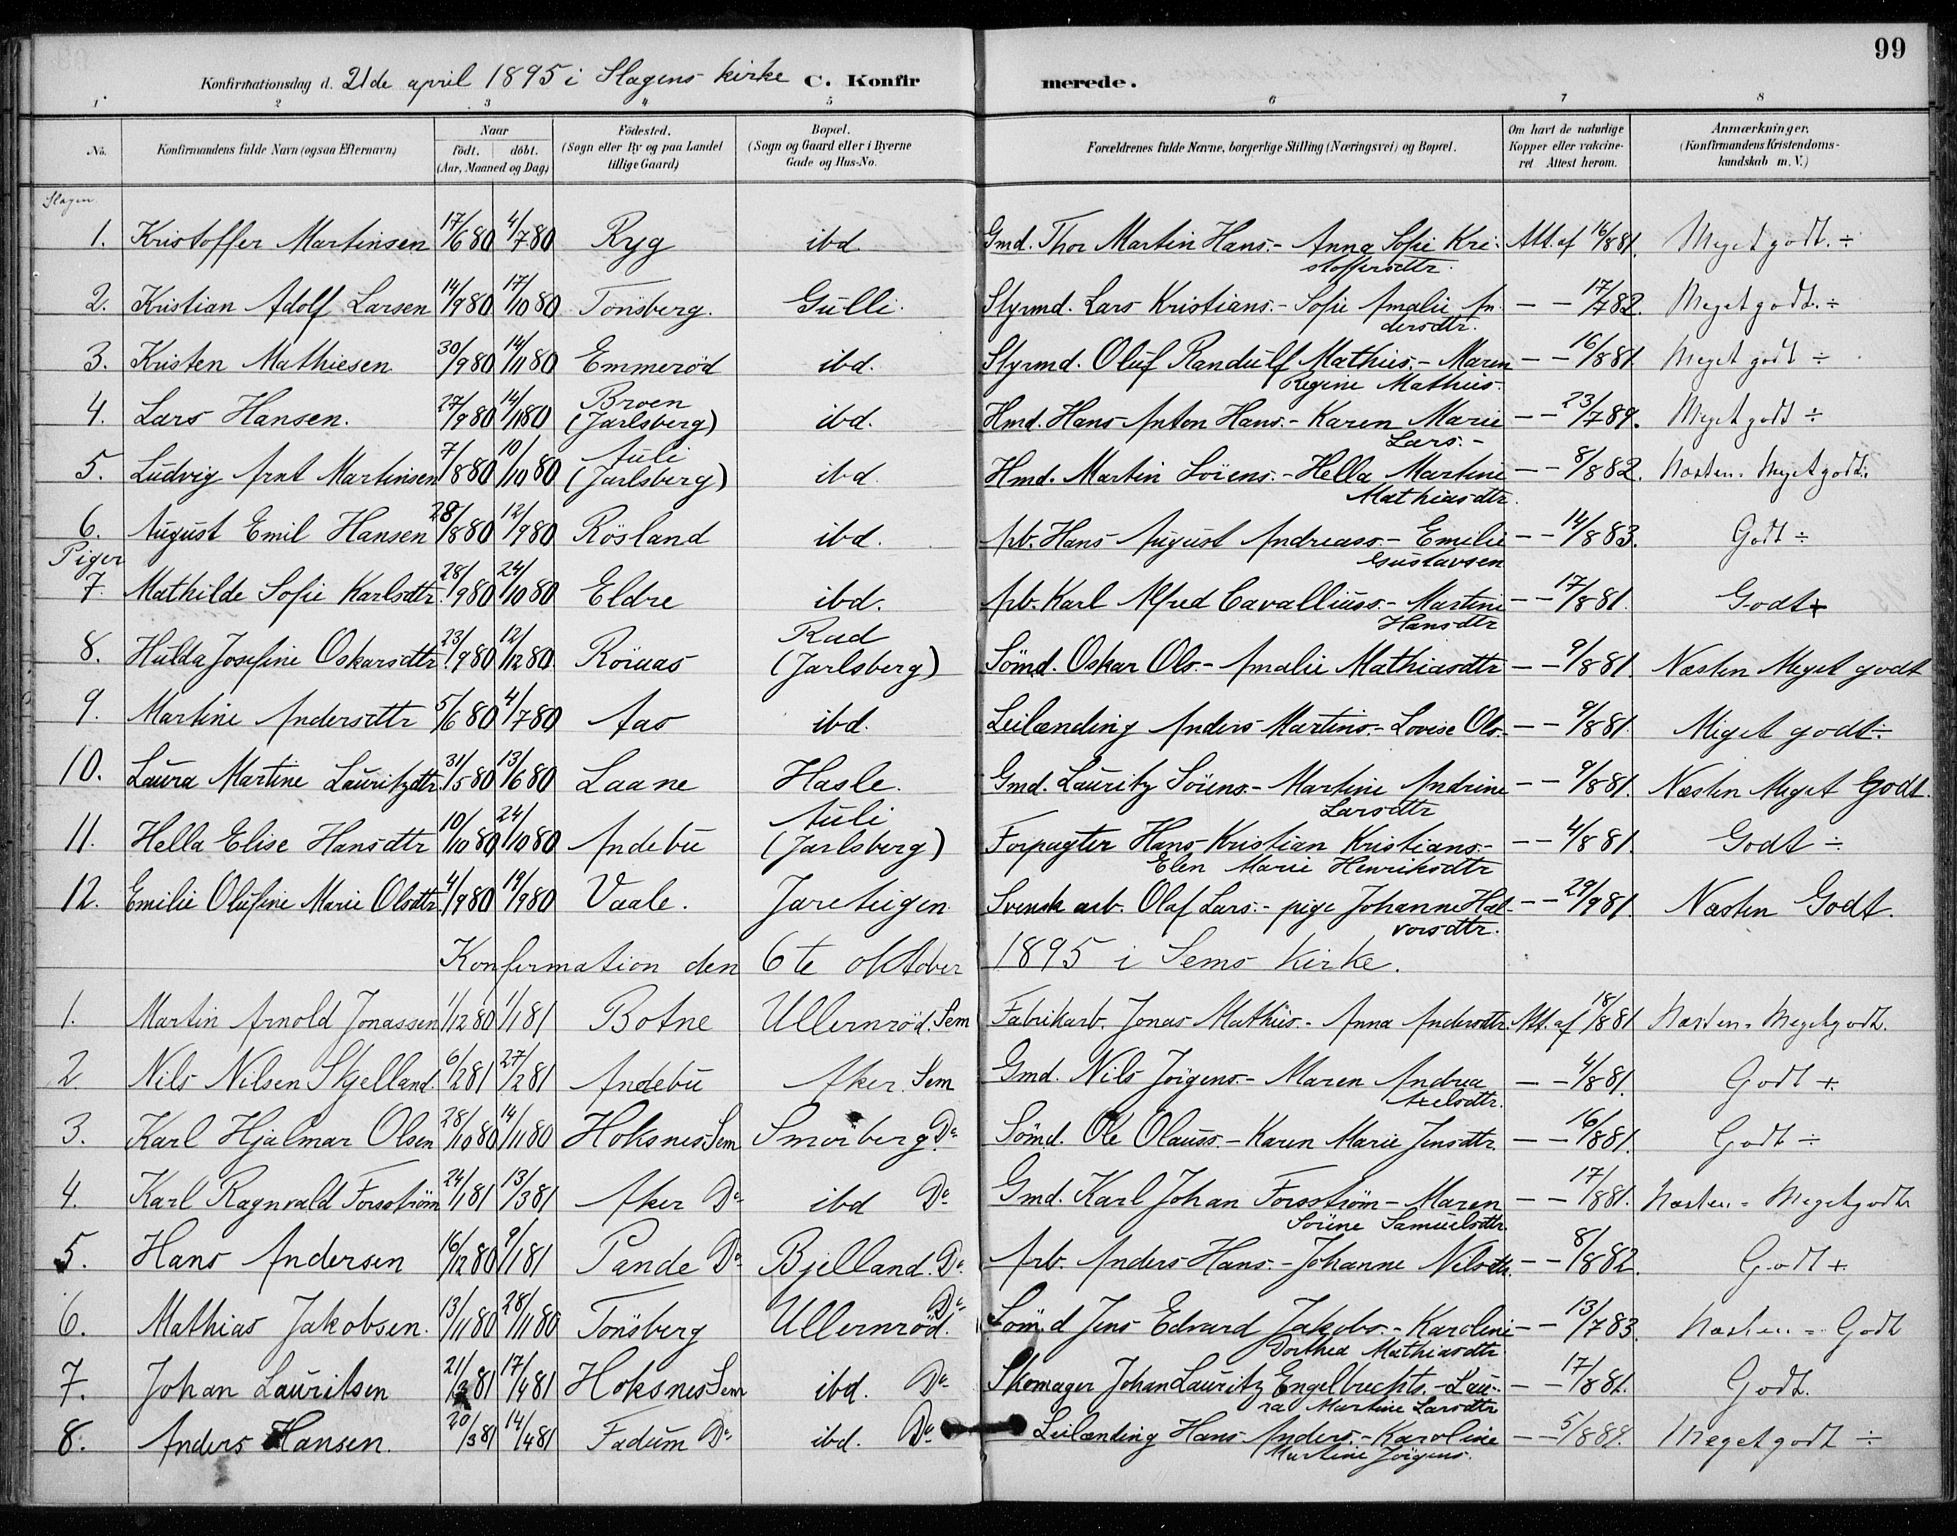 99
Konfirmationsdag d. 21de april 1895 i Slagens kirke C. Konfirmerede.
1 2 3 4 5 6 7 8
No. Konfirmandens fulde Navn (ogsaa Efternavn) Naar födt. döbt. (Aar, Maaned og Dag) Födested. (Sogn eller By og paa Landet tillige Gaard) Bopæl. (Sogn og Gaard eller i Byerne Gade og Hus-No. Forældrenes fulde Navne, borgerlige Stilling (Næringsvei) og Bopæl. Om havt de naturlige Kopper eller vakcineret. Attest herom. Anmærkninger. (Konfirmandens Kristendomskundskab m. V.)
Slagen
1. Kristoffer Martinsen 17/6 80 4/7 80 Ryg ibd Gmd. Thor Martin Hans.- Anna Sofie Kri- Att. af 16/8 81. Meget godt. ÷
stoffersdtr.
2. Kristian Adolf Larsen 14/9 80 17/10 80 Tönsberg. Gulli. Styrmd. Lars Kristians.- Sofie Amalie An- — — 17/7 82. Meget godt. ÷
dersdtr.
3. Kristen Mathiesen 30/9 80 14/11 80 Emmeröd ibd. Styrmd. Oluf Randulf Mathies.- Maren — — 16/8 81. Meget godt ÷
Regine Mathies.
4. Lars Hansen. 27/9 80 14/11 80 Broen (Jarlsberg) ibd. Hmd. Hans Anton Hans.- Karen Marie — — 23/7 89. Meget godt ÷
Lars.-
5. Ludvig Arnt Martinsen 7/8 80 10/10 80 Auli (Jarlsberg) ibd. Hmd. Martin Söiens.- Hella Martine — — 8/8 82. Næsten Meget godt.
Mathiasdtr.
6. August Emil Hansen 28/8 80 12/9 80 Rösland ibd. Arb. Hans August Andreass.- Emilie — — 14/8 83. Godt ÷
Gustavsen
Piger
7. Mathilde Sofie Karlsdtr. 28/9 80 24/10 80 Eldre ibd. Arb. Karl Alfred Cavalliuss.- Martine — — 17/8 81. Godt +
Hansdtr
8. Hulda Josefine Oskarsdtr 23/9 80 12/12 80 Röiaas Rud (Jarlsberg) Sömd. Oskar Ols.- Amalie Mathiasdtr — — 9/8 81. Næsten Meget godt
9. Martine Andersdtr 5/6 80 4/7 80 Aas ibd. Leilænding Anders Martins.- Lovise Ols.- — — 9/8 81. Meget godt ÷
10. Laura Martine Lauritzdtr. 31/5 80 13/6 80 Laane Hasle. Gmd. Lauritz Söiens.- Martine Andrine — — 9/8 81. Næsten Meget Godt.
Larsdtr
11. Hella Elise Hansdtr 10/10 80 24/10 80 Andebu Auli (Jarlsberg) Forpagter Hans Kristian Kristians.- — — 4/8 81. Godt ÷
Elen Marie Henriksdtr
12. Emilie Olufine Marie Olsdtr. 4/9 80 19/9 80 Vaale. Jareteigen Svensk arb. Olaf Lars.- pige Johanne Hal- — — 29/9 81. Næsten Godt.
vorsdtr.
Konfirmation den 6te oktober 1895 i Sems kirke.
1. Martin Arnold Jonassen 1/12 80 1/1 81 Botne Ullernröd. Sem Fabrikarb. Jonas Mathis.- Anna Andersdtr. Att. af 18/8 81 Næsten Meget godt.
2. Nils Nilsen Skjelland 6/2 81 27/2 81 Andebu Aker. Sem Gmd. Nils Jörgens.- Maren Andrea — — 4/8 81. Godt +
Axelsdtr.
3. Karl Hjalmar Olsen 28/10 80 14/11 80 Hoksnes Sem Smörberg Do Sömd. Ole Olauss.- Karen Marie Jensdtr. — — 16/8 81. Godt ÷
4. Karl Ragnvald Forsström 24/1 81 13/3 81 Aker Do ibd Do Gmd. Karl Johan Forsström - Maren — — 17/8 81. Næsten Meget godt
Sörine Samuelsdtr.
5. Hans Andersen 16/12 80 9/1 81 Pande Do Bjelland. Do Arb. Anders Hans.- Johanne Nilsdtr. — — 8/8 82. Godt +
6. Mathias Jakobsen. 13/11 80 28/11 80 Tönsberg Ullernröd. Do Sömd Jens Edvard Jakobs.- Karoline — — 13/7 83. Næsten Godt
Dorthea Mathiasdtr.
7. Johan Lauritsen 21/3 81 17/4 81 Hoksnes Sem ibd. Do Skomager Johan Lauritz Engelbrechts.- Lau- — — 17/8 81. Godt.
ra Martine Larsdtr
8. Anders Hansen. 20/3 81 14/4 81 Fadum Do ibd. Do Leilænding Hans Anders.- Karoline — — 5/8 89. Meget godt ÷
Martine Jörgens.